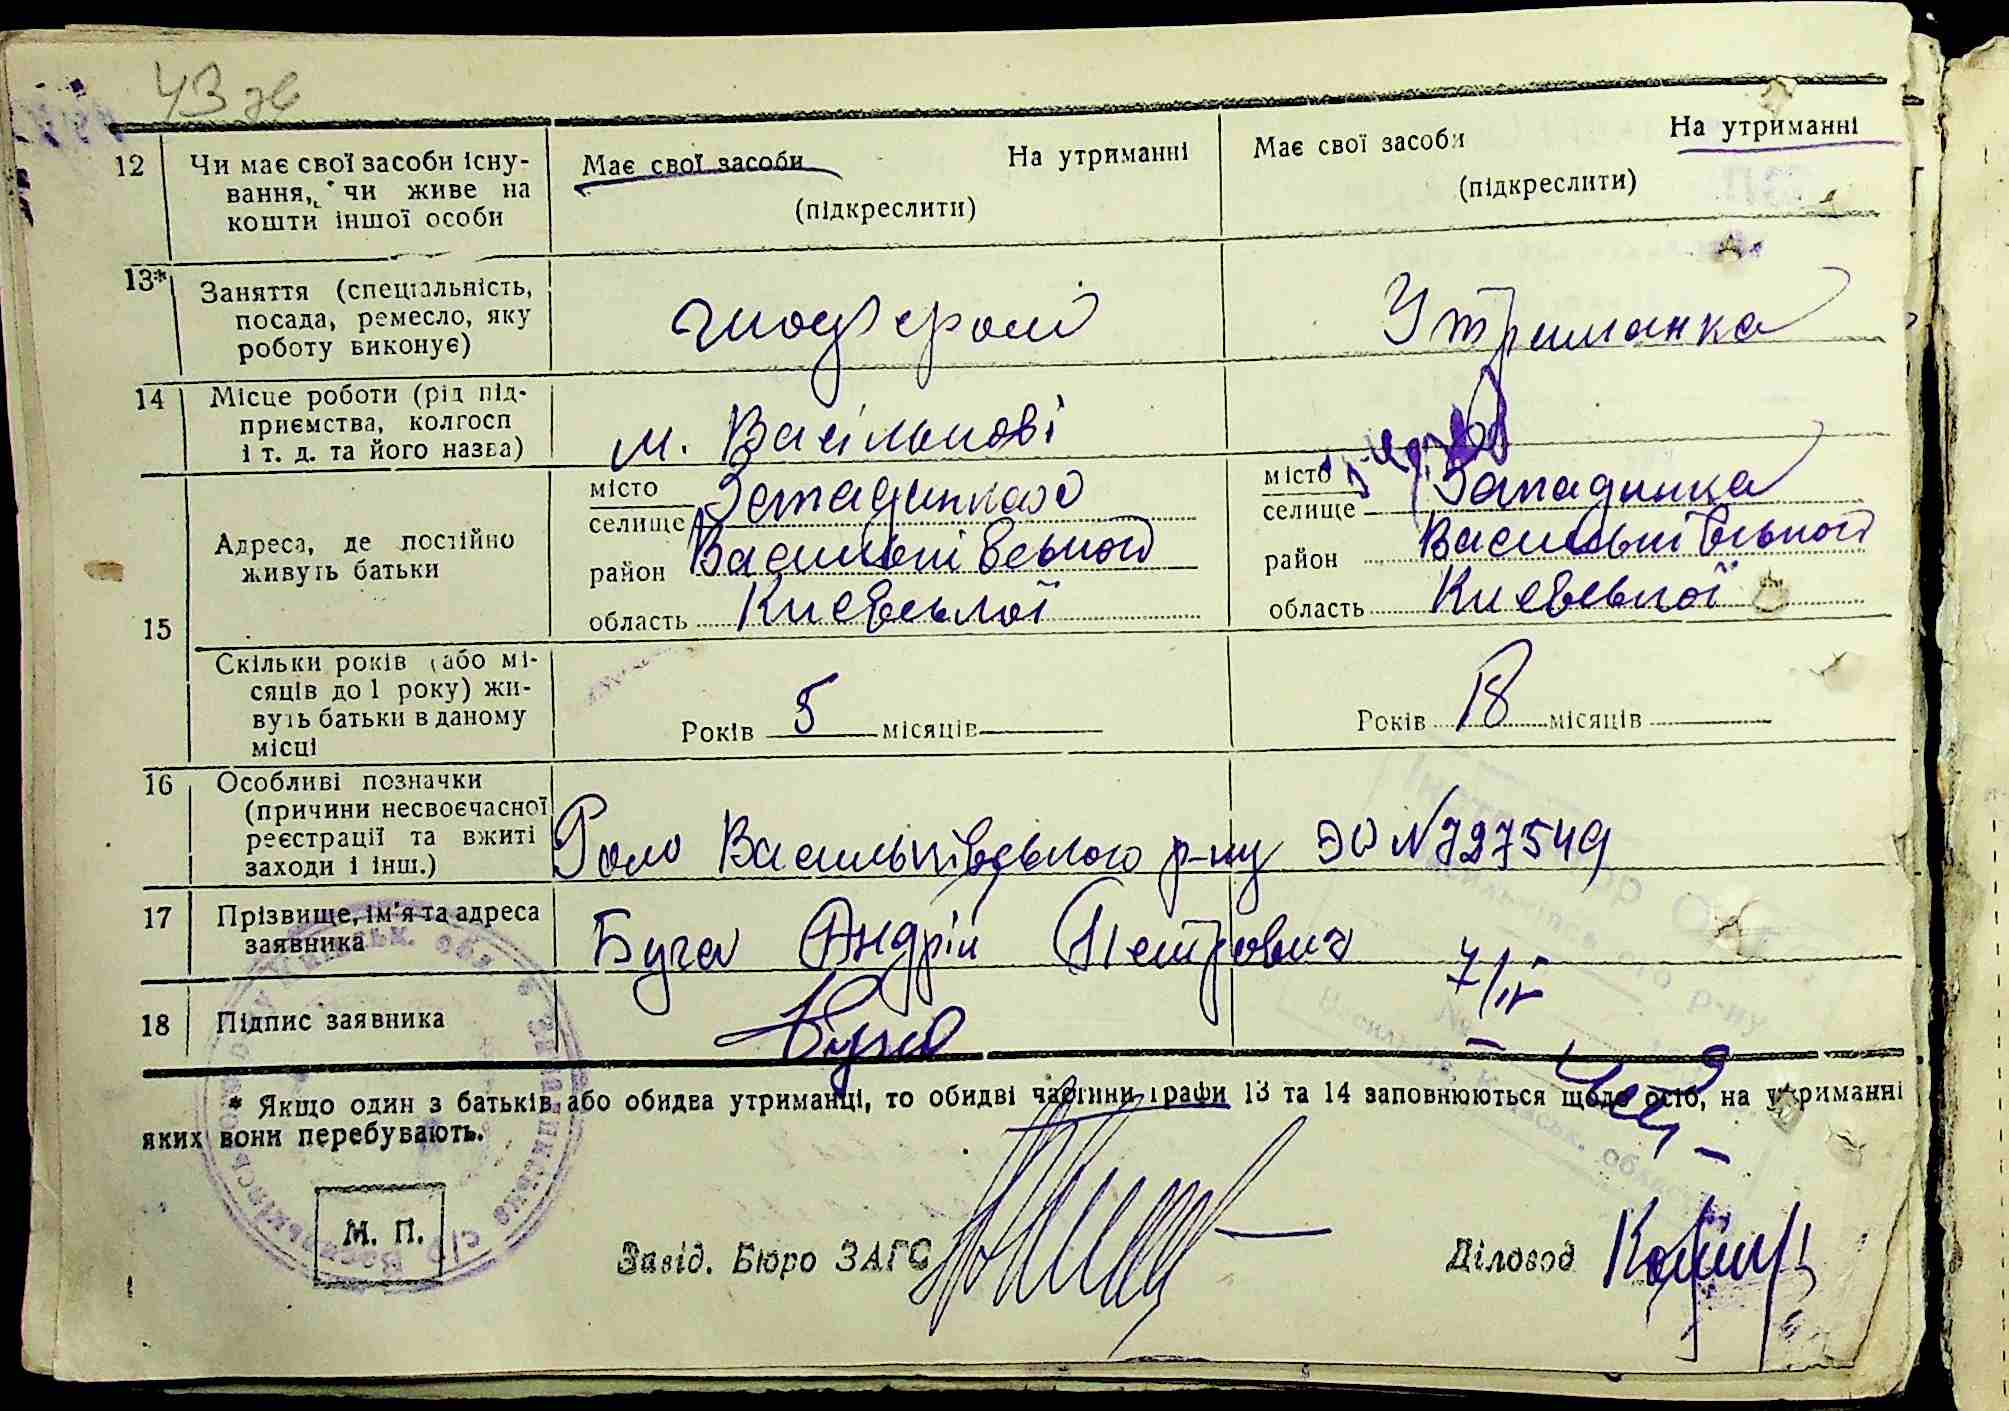 43 зв
12 Чи має свої засоби існу- Має свої засоби На утриманні Має свої засоби На утриманні
вання, чи живе на (підкреслити) (підкреслити)
кошти іншої особи
13* Заняття (спеціальність,
посада, ремесло, яку шофером Утриманка
роботу виконує)
14 Місце роботи (рід під-
приємства, колгосп м. Васількові
і т. д. та його назва)
місто місто
селище селище Западинка
Адреса, де постійно район Васильківського район Васильківського
живуть батьки область Київської область Київської
15
Скільки років (або мі-
сяців до 1 року) жи-
вуть батьки в даному Років 5 місяців Років 18 місяців
місці
16 Особливі позначки
(причини несвоєчасної
реєстрації та вжиті Васильківського р-ну № 727549
заходи і інш.)
17 Прізвище, ім'я та адреса Буча Андрій Петрович
заявника
7/IV
18 Підпис заявника Буча
* Якщо один з батьків або обидва утриманці, то обидві частини графи 13 та 14 заповнюються щодо осіб, на утриманні
яких вони перебувають.
М. П.
Завід. Бюро ЗАГС Діловод